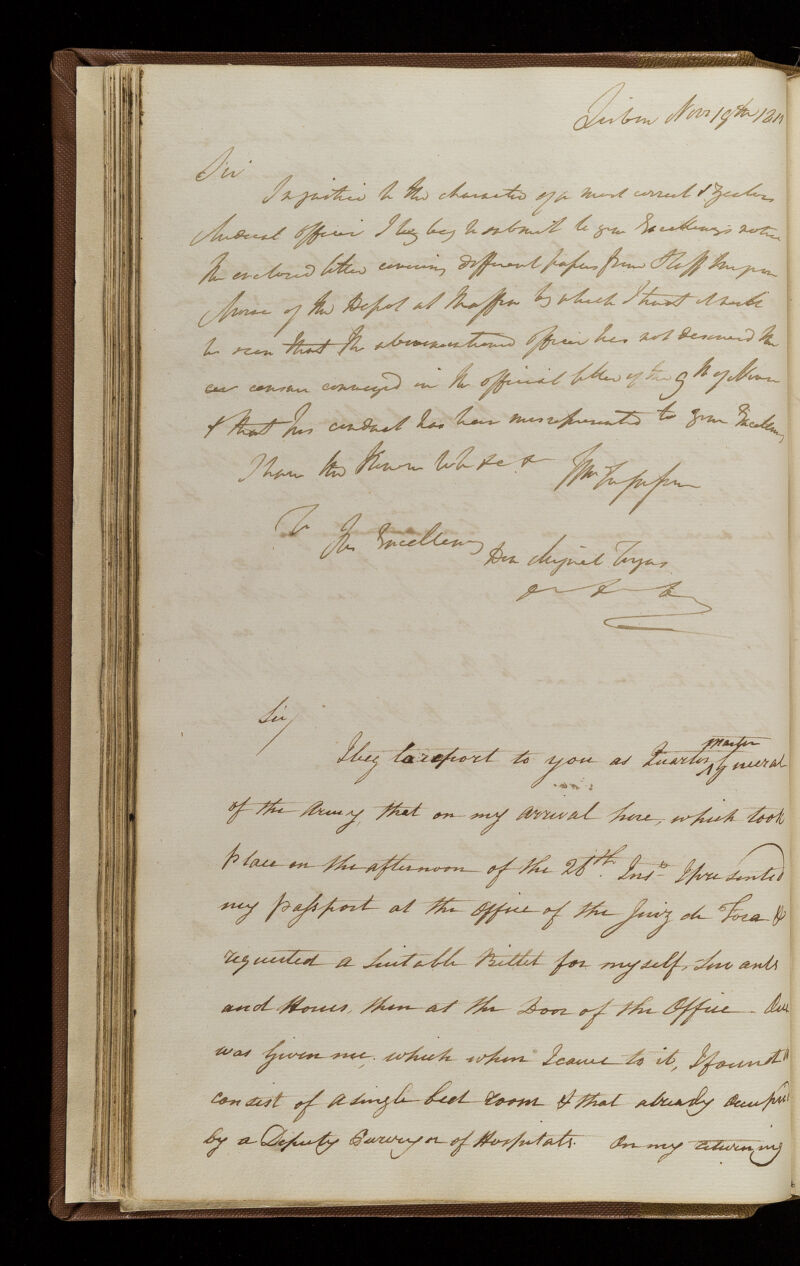 Lisbon Nov 19th 1811
Sir
In justice to the character of a most correct & Zealous
Medical Officer I beg to submit to your Excellency's notice
the enclosed letter covering different papers from Staff Surgeon
Morse of the Depot at Maffra by which I trust it will
be seen that the abovementioned Officer has not deserved the
censure conveyed in the official letter of the 9th of
& that his conduct has been misrepresented to your Excellency
I have the Honor to be &c &
To
His Excellency Don Miguel
&c &c &c
Sir
I beg to report to you as Quarter master General
of the Army, that on my arrival here, which took
place on the afternoon of the 26th Inst I presented
my passport at the Office of the Juiz de Fora &
requested a Suitable Billet for myself, Servants
and Horses, then at the Door of the Office - One
was given me, which when I came to it, I found to
consist of a single bed room & that already occupied
by a Deputy Purveyor of Hospitals. On my returning